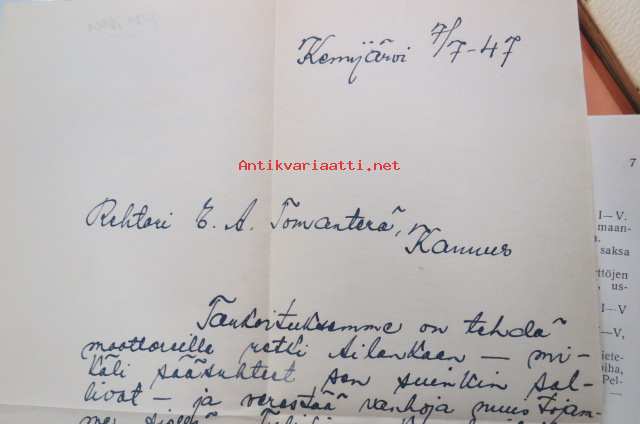 Kemijärvi 7/7-47
Antikvariaatti.net
Rehtori E. A. Tomanterä,
Kannus
Tarkoituksemme on tehdä
moottoreilla retki Ailankaan – mi-
käli sääsuhteet sen suinkin sal-
livat – ja verestää vanhoja muistojam-
me siellä
7
I—V.
maan-
saksa
ttöjen
us-
I—V
—V,
iete-
oiha,
Pel-